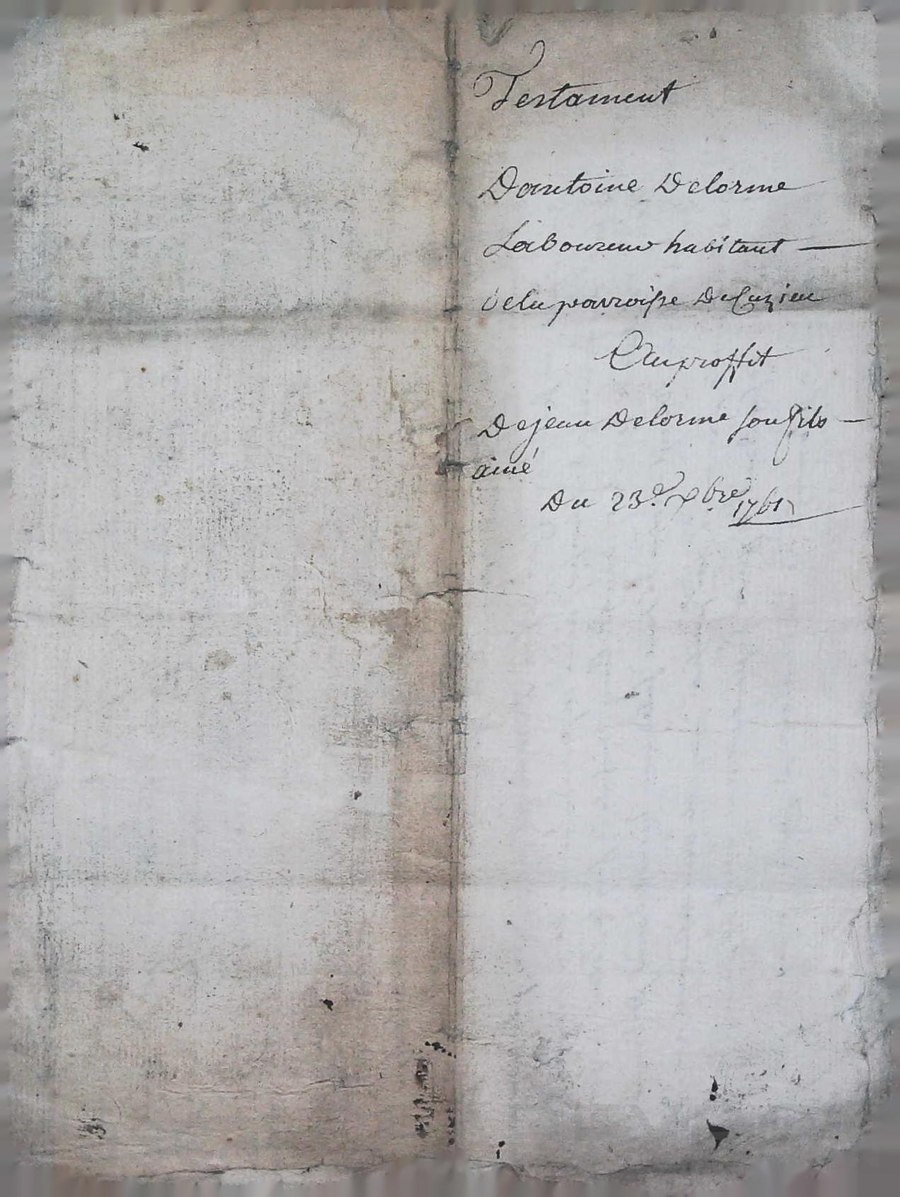 Testament
Dantoine Delorme
Laboureur habitant —
de la parroisse De Cuzieu
Au proffit
De jean Delorme son fils —
ainé
Du 23e xbre 1761